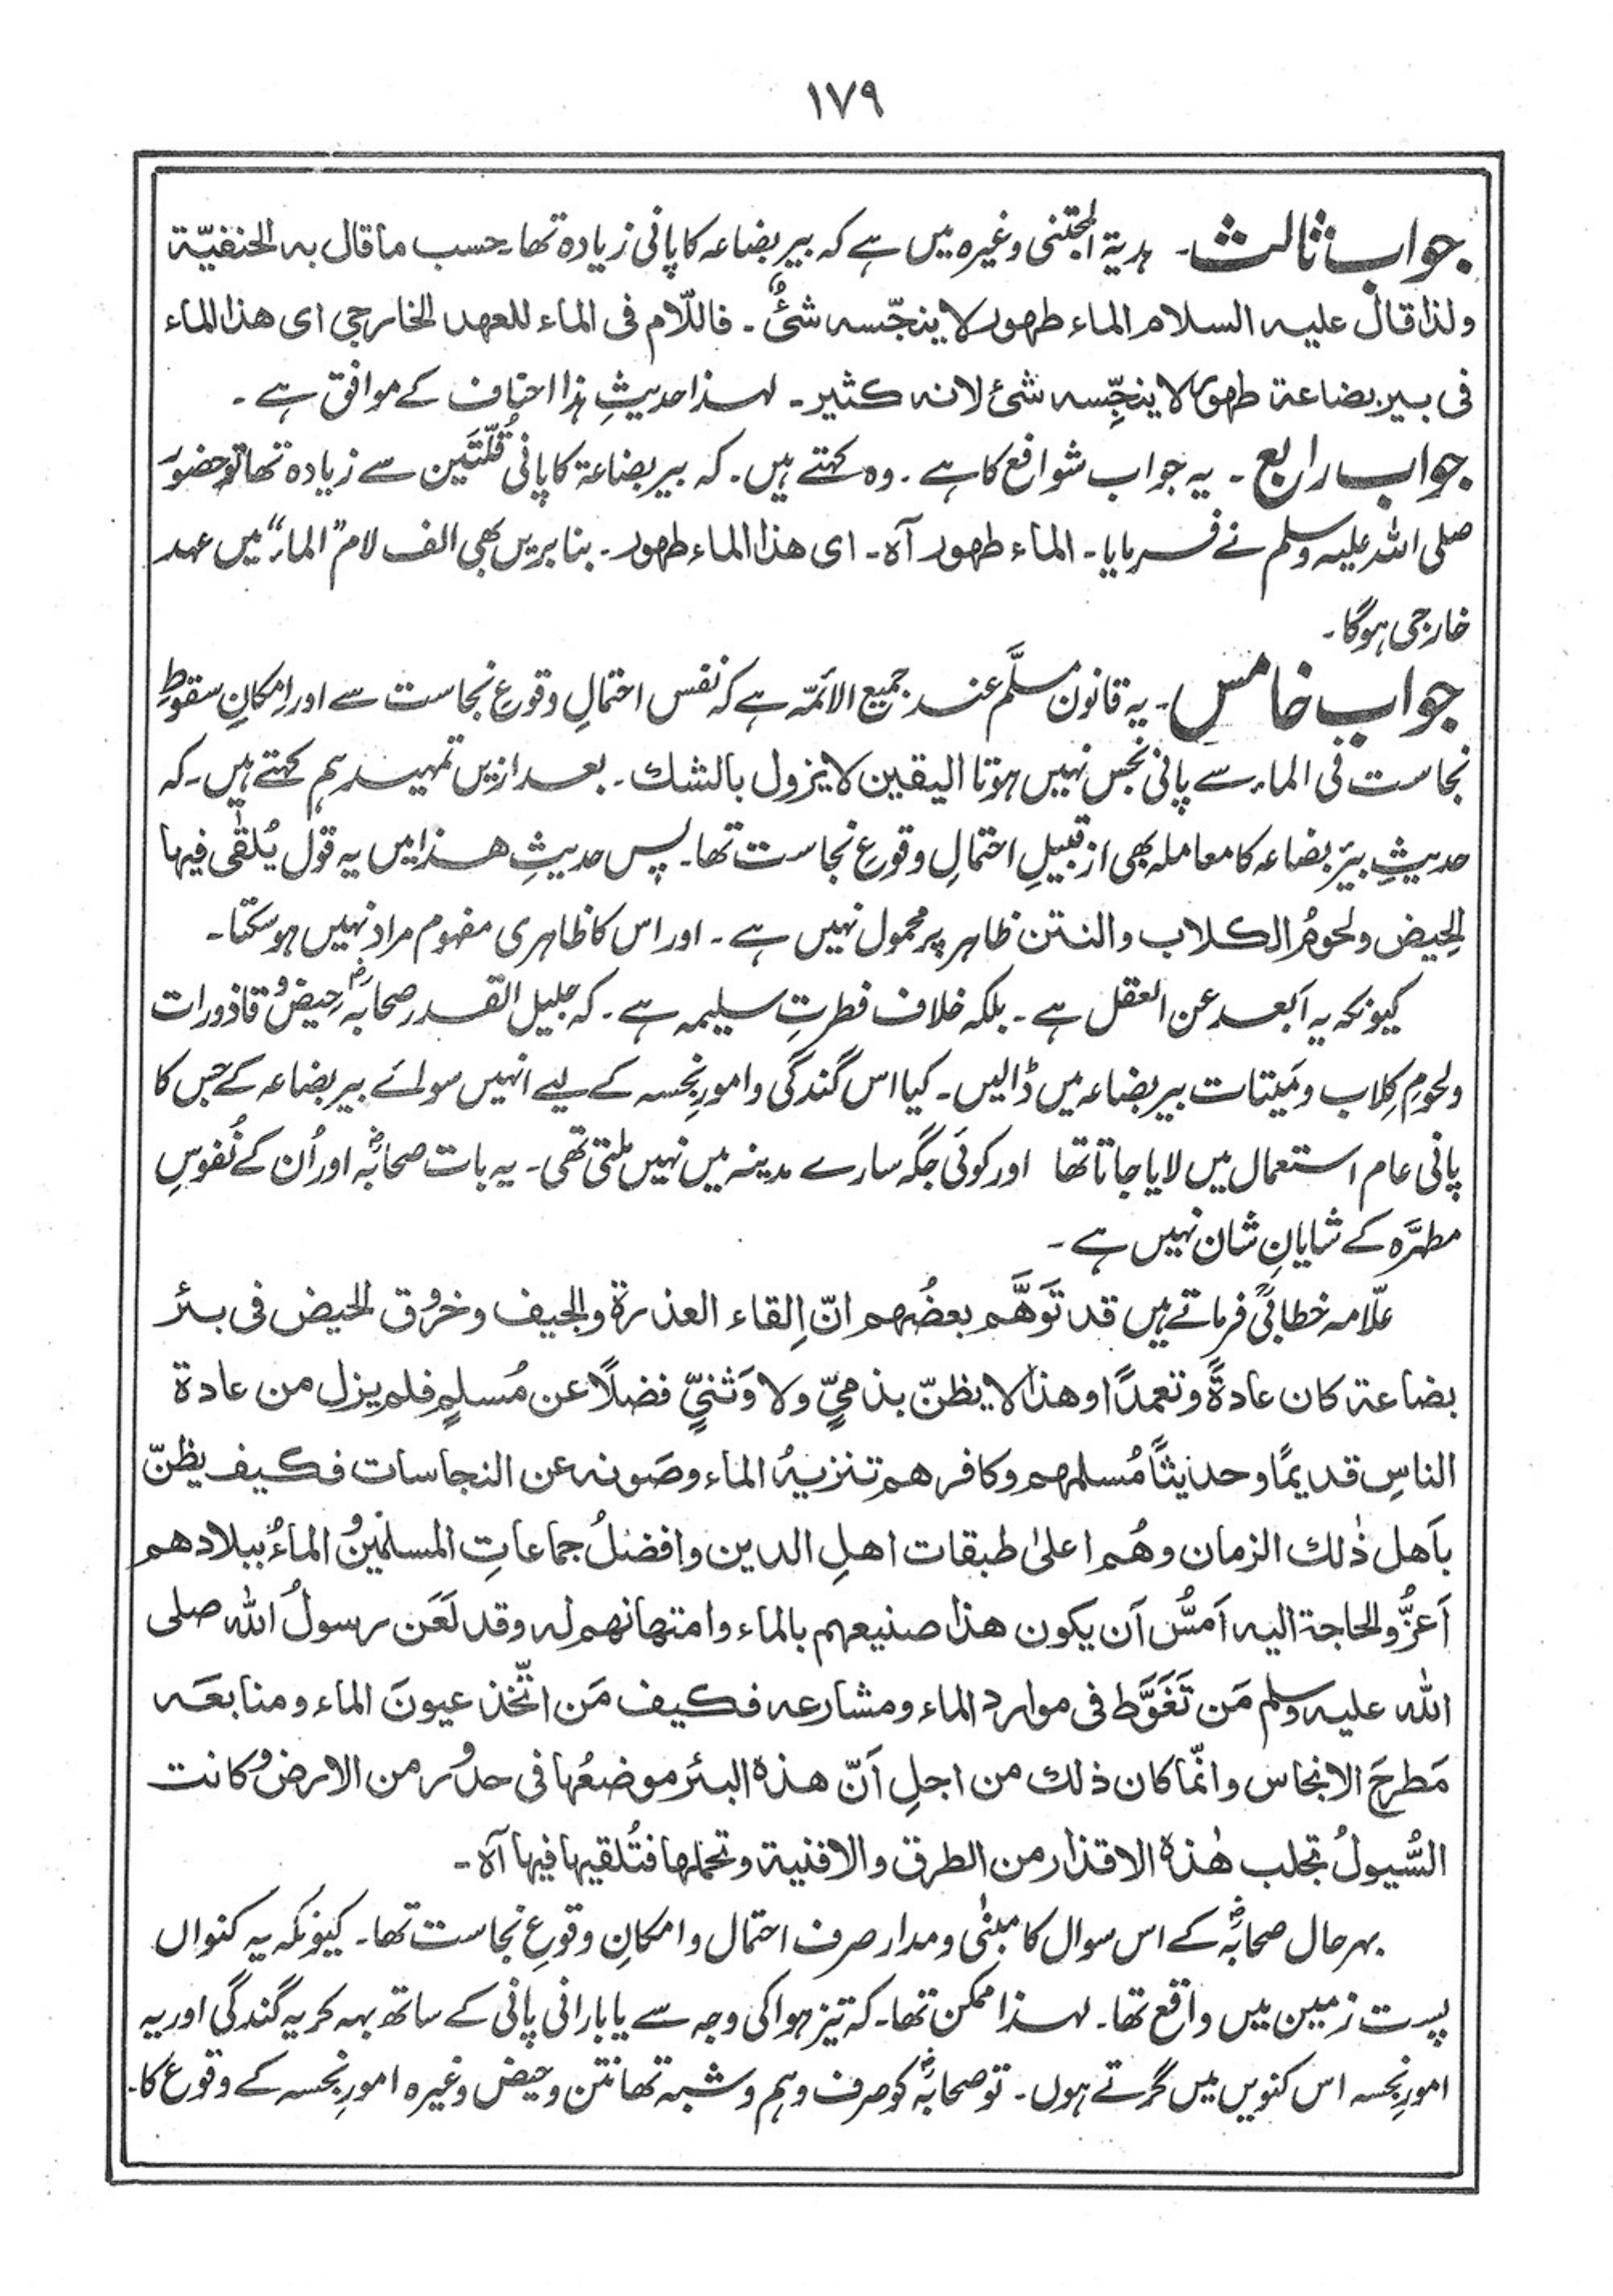 ١٧٩
جواب ثالث۔ ہدیۃ المجتنی وغیرہ میں ہے کہ بیر بضاعہ کا پانی زیادہ تھا۔ حسب ما قال بہ الحنفیّۃ
ولذا قال علیہ السلام الماء طھور لا ینجّسہ شیٌٔ ۔ فاللّام فی الماء للعھد الخارجی ای ھذا الماء
فی بیر بضاعۃ طھور لا ینجِّسہ شیٔ لانہ کثیر۔ لہٰذا حدیثِ ہٰذا احناف کے موافق ہے ۔
جواب رابع ۔ یہ جواب شوافع کا ہے ۔ وہ کہتے ہیں۔ کہ بیر بضاعۃ کا پانی قُلّتَین سے زیادہ تھا تو حضور
صلی اللہ علیہ وسلم نے فرمایا۔ الماء طھور آہ۔ ای ھذا الماء طھور۔ بنا بریں بھی الف لام "الماء" میں عہد
خارجی ہوگا ۔
جواب خامس ۔ یہ قانون مسلَّم عند جمیع الائمّہ ہے کہ نفس احتمالِ وقوعِ نجاست سے اور اِمکانِ سقوطِ
نجاست فی الماء سے پانی نجس نہیں ہوتا الیقین لا یزول بالشك ۔ بعد ازیں تمہید ہم کہتے ہیں۔ کہ
حدیثِ بئر بضاعہ کا معاملہ بھی از قبیلِ احتمالِ وقوعِ نجاست تھا۔ پس حدیثِ ھذا میں یہ قول یُلقٰی فیہا
الحِیض ولحومُ الکلاب والنتن ظاہر پر محمول نہیں ہے ۔ اور اس کا ظاہری مفہوم مراد نہیں ہوسکتا۔
کیونکہ یہ اَبعد عن العقل ہے ۔ بلکہ خلاف فطرتِ سلیمہ ہے ۔ کہ جلیل القدر صحابہؓ حِیض و قاذورات
ولحومِ کِلاب ومَیتات بیر بضاعہ میں ڈالیں۔ کیا اس گندگی وامورِ نجسہ کے لیے انہیں سوائے بیر بضاعہ کے جس کا
پانی عام استعمال میں لایا جاتا تھا اور کوئی جگہ سارے مدینہ میں نہیں ملتی تھی۔ یہ بات صحابہؓ اور اُن کے نُفوسِ
مطہَّرہ کے شایانِ شان نہیں ہے ۔
علّامہ خطابیؒ فرماتے ہیں قد تَوَھَّم بعضُھم انّ اِلقاء العذرۃ والجیف وخرُوق الحیض فی بئر
بضاعۃ کان عادۃً وتعمدًا وھذا لا یظنّ بذمیٍّ ولا وَثنیٍّ فضلًا عن مُسلمٍ فلم یزل من عادۃ
الناسِ قدیمًا وحدیثًا مُسلمھم وکافرھم تنزیہُ الماء وصَونہ عن النجاسات فکیف یظنّ
باَھل ذٰلك الزمان وھُم اعلیٰ طبقات اھلِ الدین وافضلُ جماعاتِ المسلمین والماءُ ببلادھم
اَعزُّ والحاجۃ الیہ اَمسُّ اَن یکون ھذا صنیعھم بالماء وامتھانھم لہ وقد لَعَن رسولُ اللہ صلی
اللہ علیہ وسلم مَن تَغَوَّط فی موارد الماء ومشارعہ فکیف مَن اتّخذ عیونَ الماء ومنابعَہ
مَطرحَ الانجاس وانّما کان ذلك من اجلِ اَنّ ھذہ البئر موضعُہا فی حدُور من الارض وکانت
السُّیولُ تجلب ھٰذہ الاقذار من الطرق والافنیۃ وتحملھا فتُلقیہا فیہا آہ ۔
بہرحال صحابہؓ کے اس سوال کا مبنٰی ومدار صرف احتمال وامکانِ وقوعِ نجاست تھا۔ کیونکہ یہ کنواں
پست زمین میں واقع تھا۔ لہٰذا ممکن تھا۔ کہ تیز ہوا کی وجہ سے یا بارانی پانی کے ساتھ بہہ کر یہ گندگی اور یہ
امورِ نجسہ اس کنویں میں گرتے ہوں۔ تو صحابہؓ کو صرف وہم وشبہ تھا نتن وحیض وغیرہ امورِ نجسہ کے وقوع کا۔